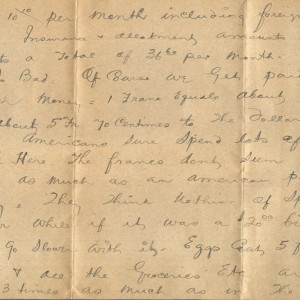 10 10 per month including foreign
Insurance & allotment amounts
to a Total of 36 60 per month.
To Bad. Of Barse we get paid
Money = 1 Franc Equals about
about 5 Fr 70 Centimes to The Dollar
Americans sure spend lots of
Here The francs dont seem
as much as an American p
They Think Nothing of Sp
while if it was a $20 00 bi
Go Slower with it. Eggs Cost 5 f
& all the Groceries Etc ar
3 times as much as in The